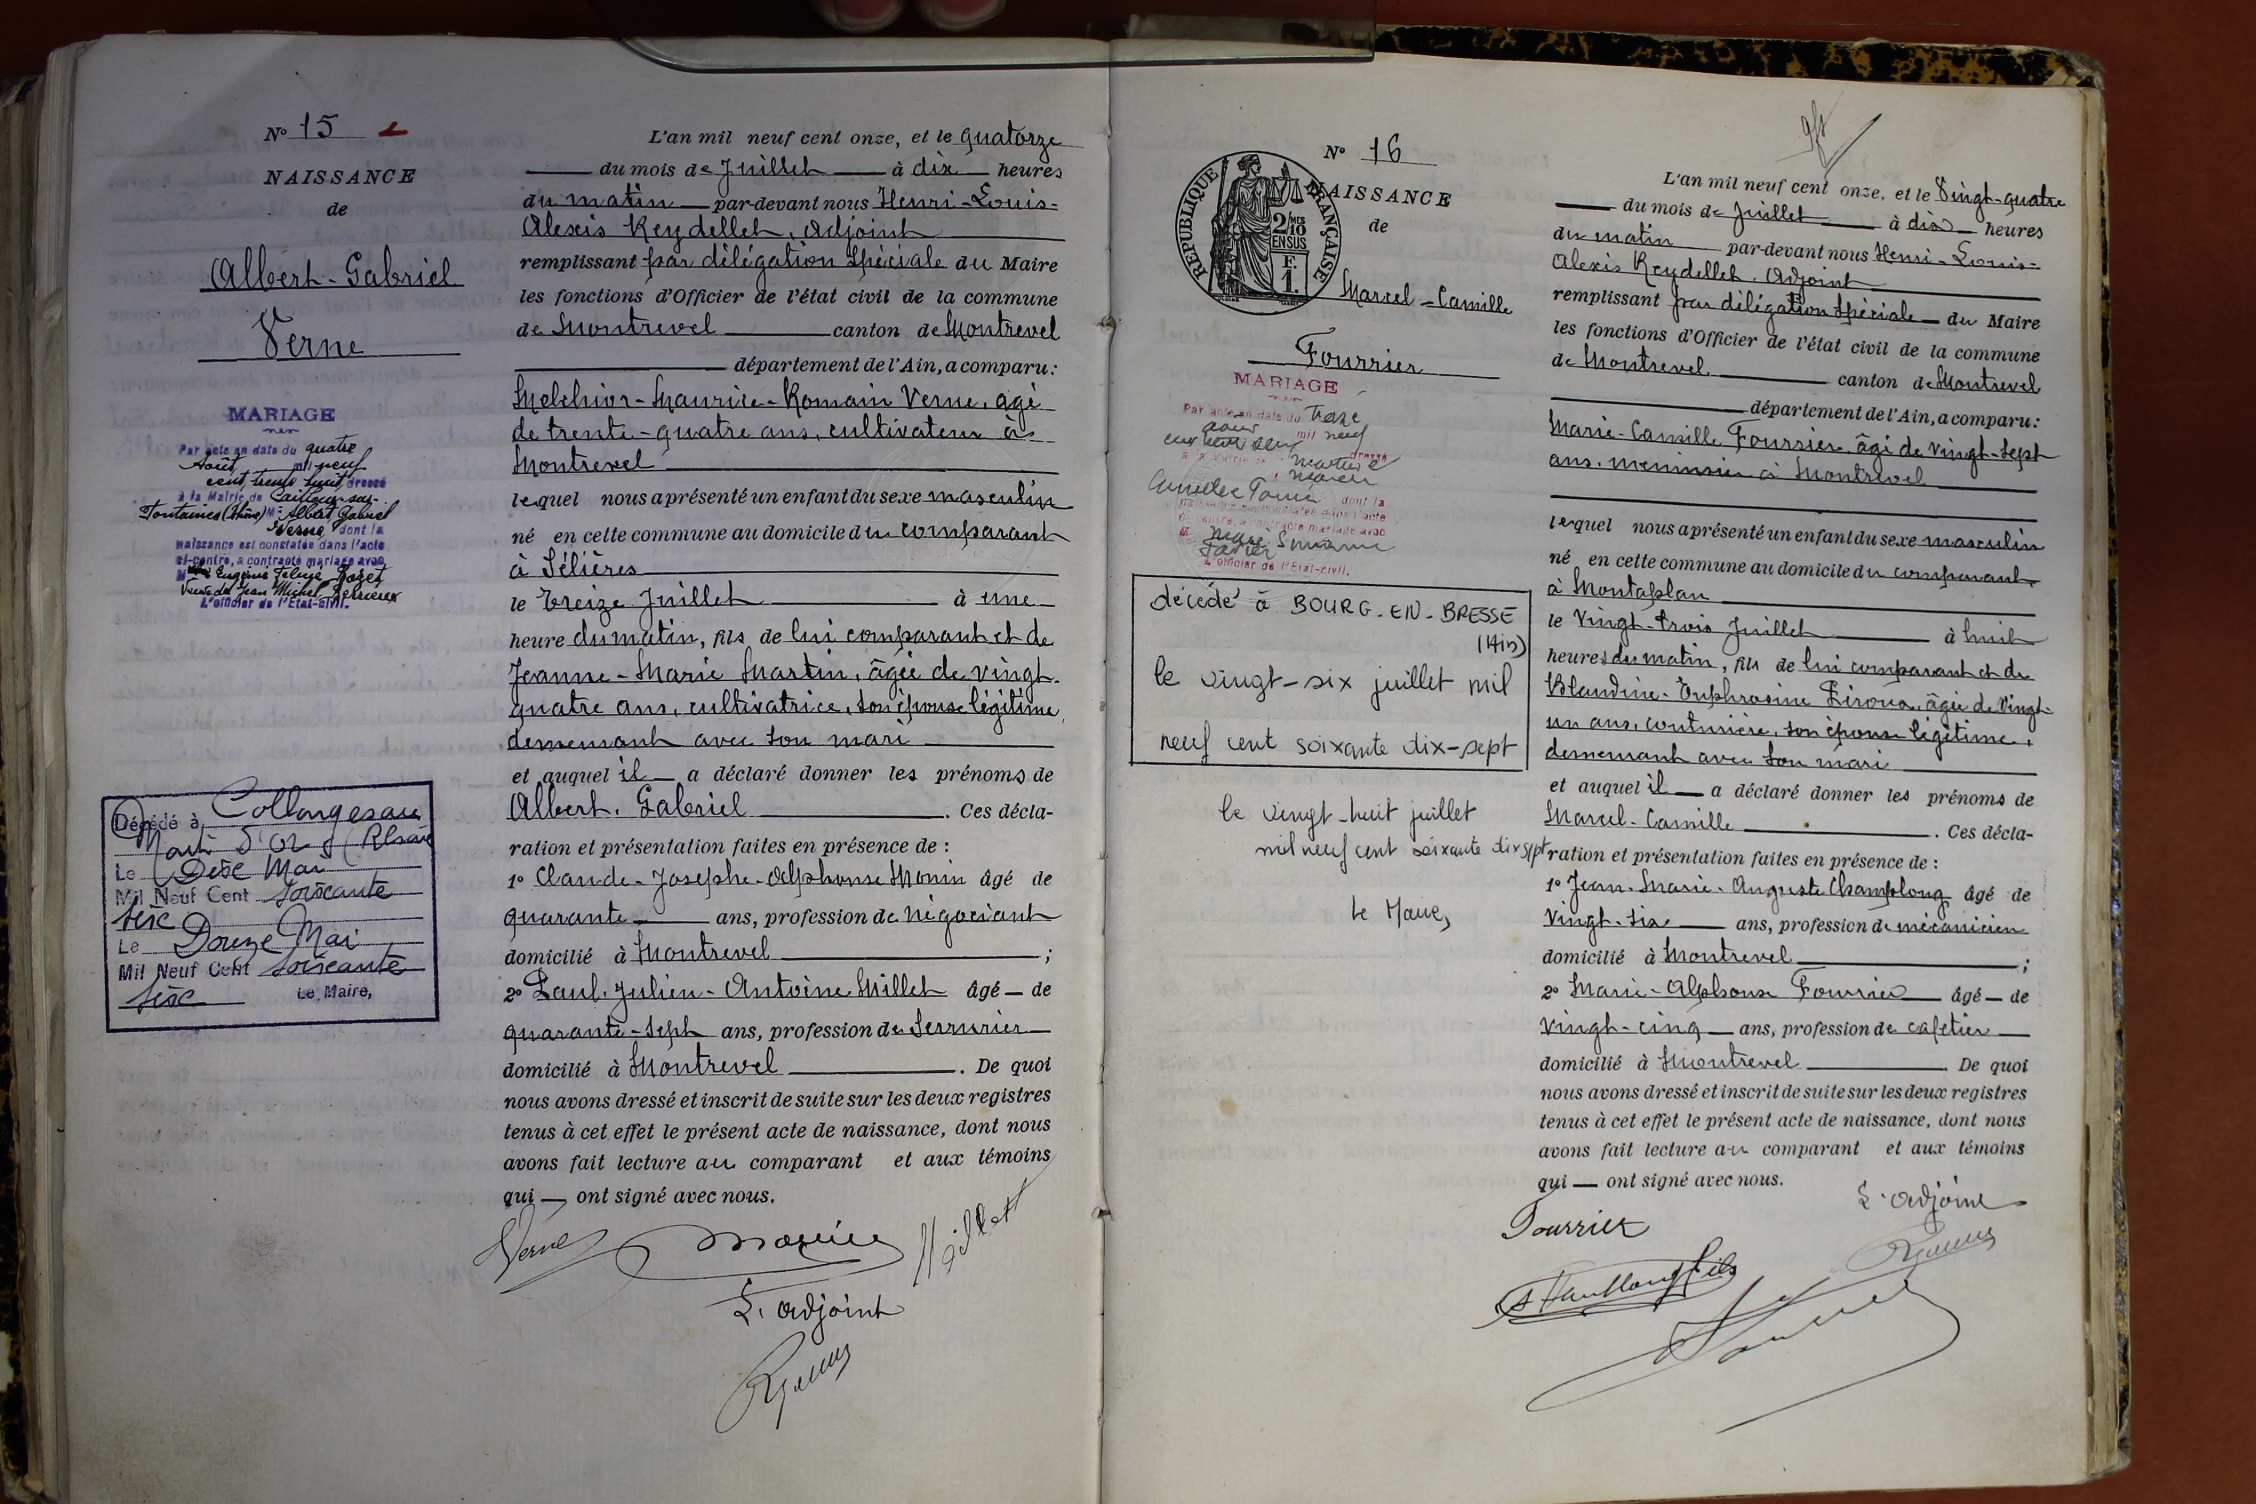 N° 15
NAISSANCE
de
Albert-Gabriel
Verne
MARIAGE
Par acte en date du quatre
Août mil neuf
cent trente huit dressé
à la Mairie de Cailloux-sur-
Fontaines (Rhône) M. Albert Gabriel
Verne dont la
naissance est constatée dans l'acte
ci-contre, a contracté mariage avec
M Eugénie Félicie
Veuve de Jean Michel
L'officier de l'Etat-civil.
Décédé à Collonges au
Mont d'Or (Rhône
Le Dix Mai
Mil Neuf Cent soixante
six
Le Douze Mai
Mil Neuf Cent soixante
six Le Maire,
L'an mil neuf cent onze, et le quatorze
du mois de Juillet à dix heures
du matin par-devant nous Henri-Louis-
Alexis Reydellet, Adjoint
remplissant par délégation spéciale du Maire
les fonctions d'Officier de l'état civil de la commune
de Montrevel canton de Montrevel
département de l'Ain, a comparu:
Melchior-Maurice-Romain Verne, agé
de trente-quatre ans, cultivateur à
Montrevel
lequel nous a présenté un enfant du sexe masculin
né en cette commune au domicile du comparant
à Sélières
le treize Juillet à une
heure du matin, fils de lui comparant et de
Jeanne-Marie Martin, âgée de vingt-
quatre ans, cultivatrice, son épouse légitime,
demeurant avec son mari
et auquel il a déclaré donner les prénoms de
Albert. Gabriel. Ces décla-
ration et présentation faites en présence de :
1° Claude-Josephe-Alphonse Monin âgé de
quarante ans, profession de négociant
domicilié à Montrevel ;
2° Paul. Julien-Antoine Millet âgé de
quarante-sept ans, profession de Serrurier
domicilié à Montrevel. De quoi
nous avons dressé et inscrit de suite sur les deux registres
tenus à cet effet le présent acte de naissance, dont nous
avons fait lecture au comparant et aux témoins
qui ont signé avec nous.
Verne Monin Millet
L'adjoint
N° 16
NAISSANCE
de
REPUBLIQUE FRANÇAISE
2/10 MES
EN SUS
F.
1.
Marcel-Camille
Fourrier
MARIAGE
Par acte en date du treize
mil neuf
dressé
dont la
naissance est constatée dans l'acte
ci-contre, a contracté mariage avec
L'officier de l'Etat-civil.
décédé à BOURG-EN-BRESSE
(Ain)
le vingt-six juillet mil
neuf cent soixante dix-sept
le vingt-huit juillet
mil neuf cent soixante dix sept
Le Maire,
L'an mil neuf cent onze, et le Vingt-quatre
du mois de Juillet à dix heures
du matin par-devant nous Henri-Louis-
Alexis Reydellet, Adjoint
remplissant par délégation spéciale du Maire
les fonctions d'Officier de l'état civil de la commune
de Montrevel canton de Montrevel
département de l'Ain, a comparu:
Marie-Camille Fourrier âgé de vingt-sept
ans, menuisier à Montrevel
lequel nous a présenté un enfant du sexe masculin
né en cette commune au domicile du comparant,
à Montaplan
le Vingt-trois Juillet à huit
heures du matin, fils de lui comparant et de
Blandine-Euphrosine âgée de Vingt-
un ans, couturière, son épouse légitime,
demeurant avec son mari
et auquel il a déclaré donner les prénoms de
Marcel-Camille. Ces décla-
ration et présentation faites en présence de :
1° Jean-Marie-Auguste Champlong âgé de
Vingt-six ans, profession de mécanicien
domicilié à Montrevel ;
2° Marie-Alphonse Fourrier âgé de
vingt-cinq ans, profession de cafetier
domicilié à Montrevel. De quoi
nous avons dressé et inscrit de suite sur les deux registres
tenus à cet effet le présent acte de naissance, dont nous
avons fait lecture au comparant et aux témoins
qui ont signé avec nous.
L'adjoint
Fourrier